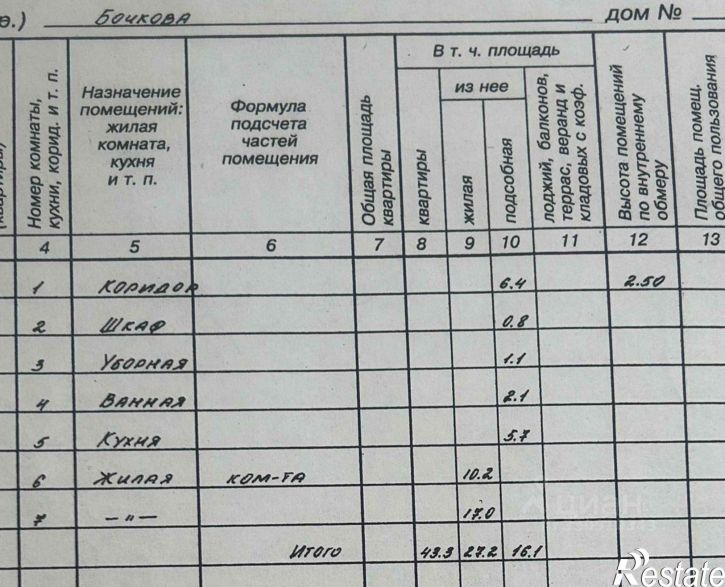 Бочкова дом №
Номер комнаты, кухни, корид. и т. п.
Назначение помещений: жилая комната, кухня и т. п.
Формула подсчета частей помещения
Общая площадь квартиры
В т. ч. площадь
квартиры
из нее
жилая
подсобная
лоджий, балконов, террас, веранд и кладовых с коэф.
Высота помещений по внутреннему обмеру
Площадь помещ. общего пользования
4 5 6 7 8 9 10 11 12 13
1 Коридор 6.4 2.50
2 Шкаф 0.8
3 Уборная 1.1
4 Ванная 2.1
5 Кухня 5.7
6 Жилая ком-та 10.2
7 —"— 17.0
Итого 43.3 27.2 16.1
циан
Restate